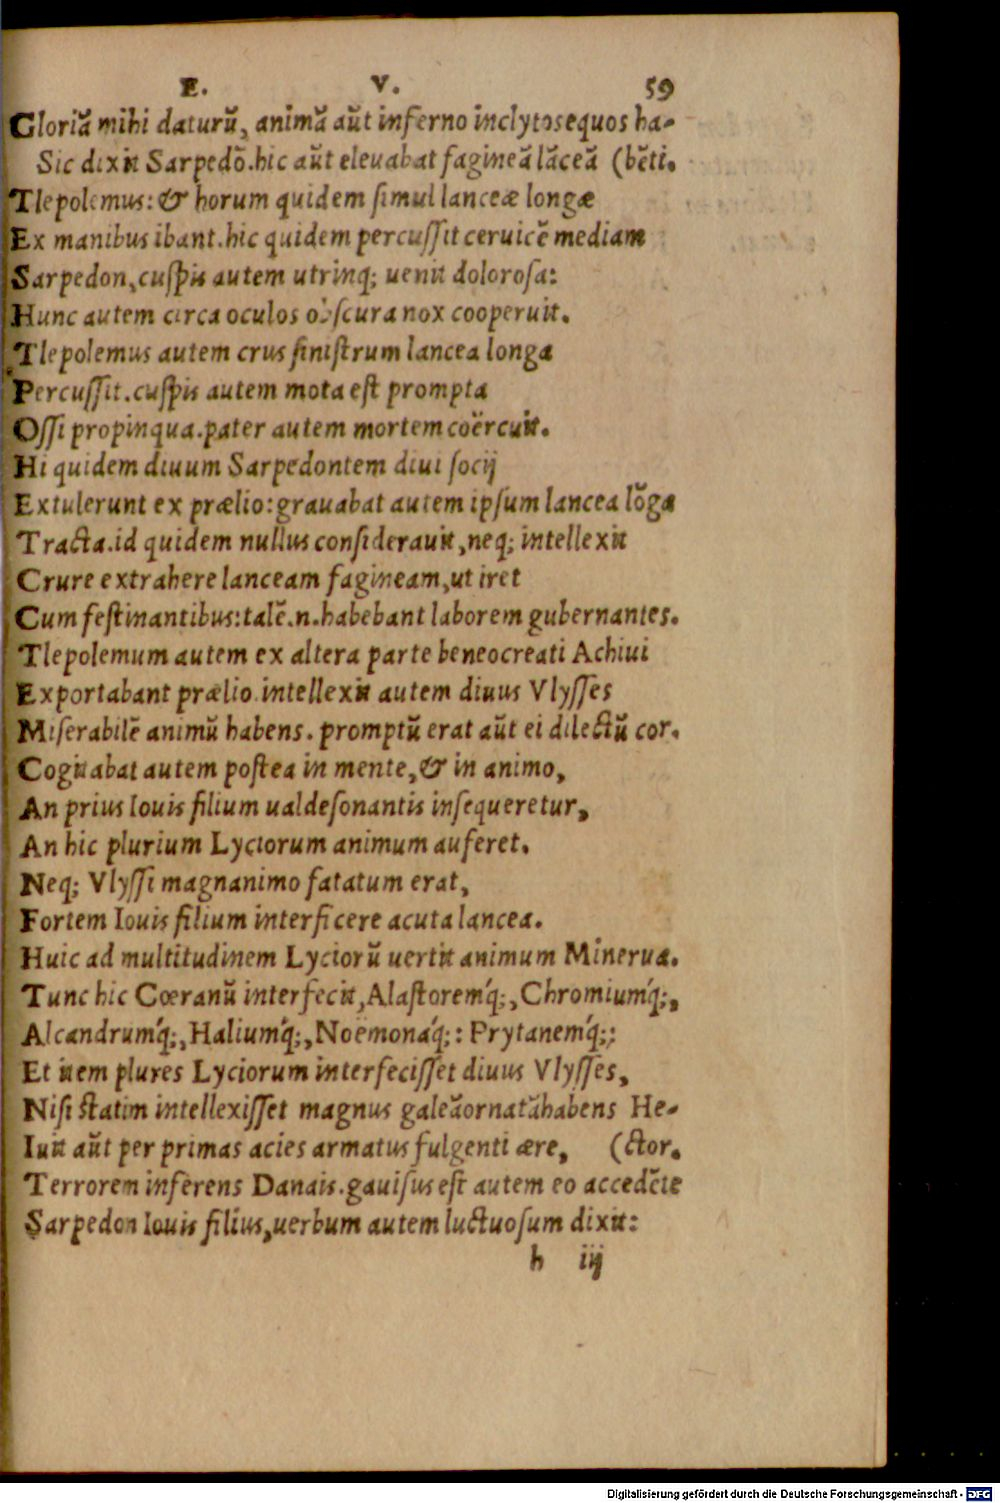 E. V. 59
Gloriā mihi daturū, animā aūt inferno inclytos equos ha-
Sic dixit Sarpedō. hic aūt eleuabat fagineā lāceā (bēti.
Tlepolemus: & horum quidem simul lanceæ longæ
Ex manibus ibant. hic quidem percussit ceruicē mediam
Sarpedon, cuspis autem utrinq; uenit dolorosa:
Hunc autem circa oculos obscura nox cooperuit.
Tlepolemus autem crus sinistrum lancea longa
Percussit. cuspis autem mota est prompta
Ossi propinqua. pater autem mortem coërcuit.
Hi quidem diuum Sarpedontem diui socij
Extulerunt ex prælio: grauabat autem ipsum lancea lōga
Tracta. id quidem nullus considerauit, neq; intellexit
Crure extrahere lanceam fagineam, ut iret
Cum festinantibus: talē.n. habebant laborem gubernantes.
Tlepolemum autem ex altera parte beneocreati Achiui
Exportabant prælio. intellexit autem diuus Vlysses
Miserabilē animū habens. promptū erat aūt ei dilectū cor.
Cogitabat autem postea in mente, & in animo,
An prius Iouis filium ualdesonantis insequeretur,
An hic plurium Lyciorum animum auferet.
Neq; Vlyssi magnanimo fatatum erat,
Fortem Iouis filium interficere acuta lancea.
Huic ad multitudinem Lyciorū uertit animum Minerua.
Tunc hic Cœranū interfecit, Alastoremq́;, Chromiumq́;,
Alcandrumq́;, Haliumq́;, Noemonaq́;: Prytanemq́;:
Et item plures Lyciorum interfecisset diuus Vlysses,
Nisi statim intellexisset magnus galeāornatāhabens He-
Iuit aūt per primas acies armatus fulgenti ære, (ctor.
Terrorem inferens Danais. gauisus est autem eo accedēte
Sarpedon Iouis filius, uerbum autem luctuosum dixit:
h iij
Digitalisierung gefördert durch die Deutsche Forschungsgemeinschaft - DFG